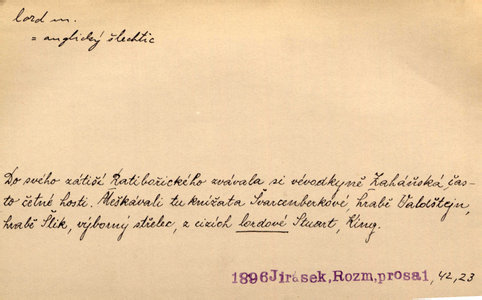 lord m.
= anglický šlechtic
Do svého zátiší Ratibořického zvávala si vévodkyně Zaháňská, čas-
to četné hosti. Meškávali tu knížata Švarcenberkové, hrabě Valdštejn,
hrabě Šlik, výborný střelec, z cizích lordové Stuart, King.
1896 Jirásek, Rozm, prosa 1, 42, 23